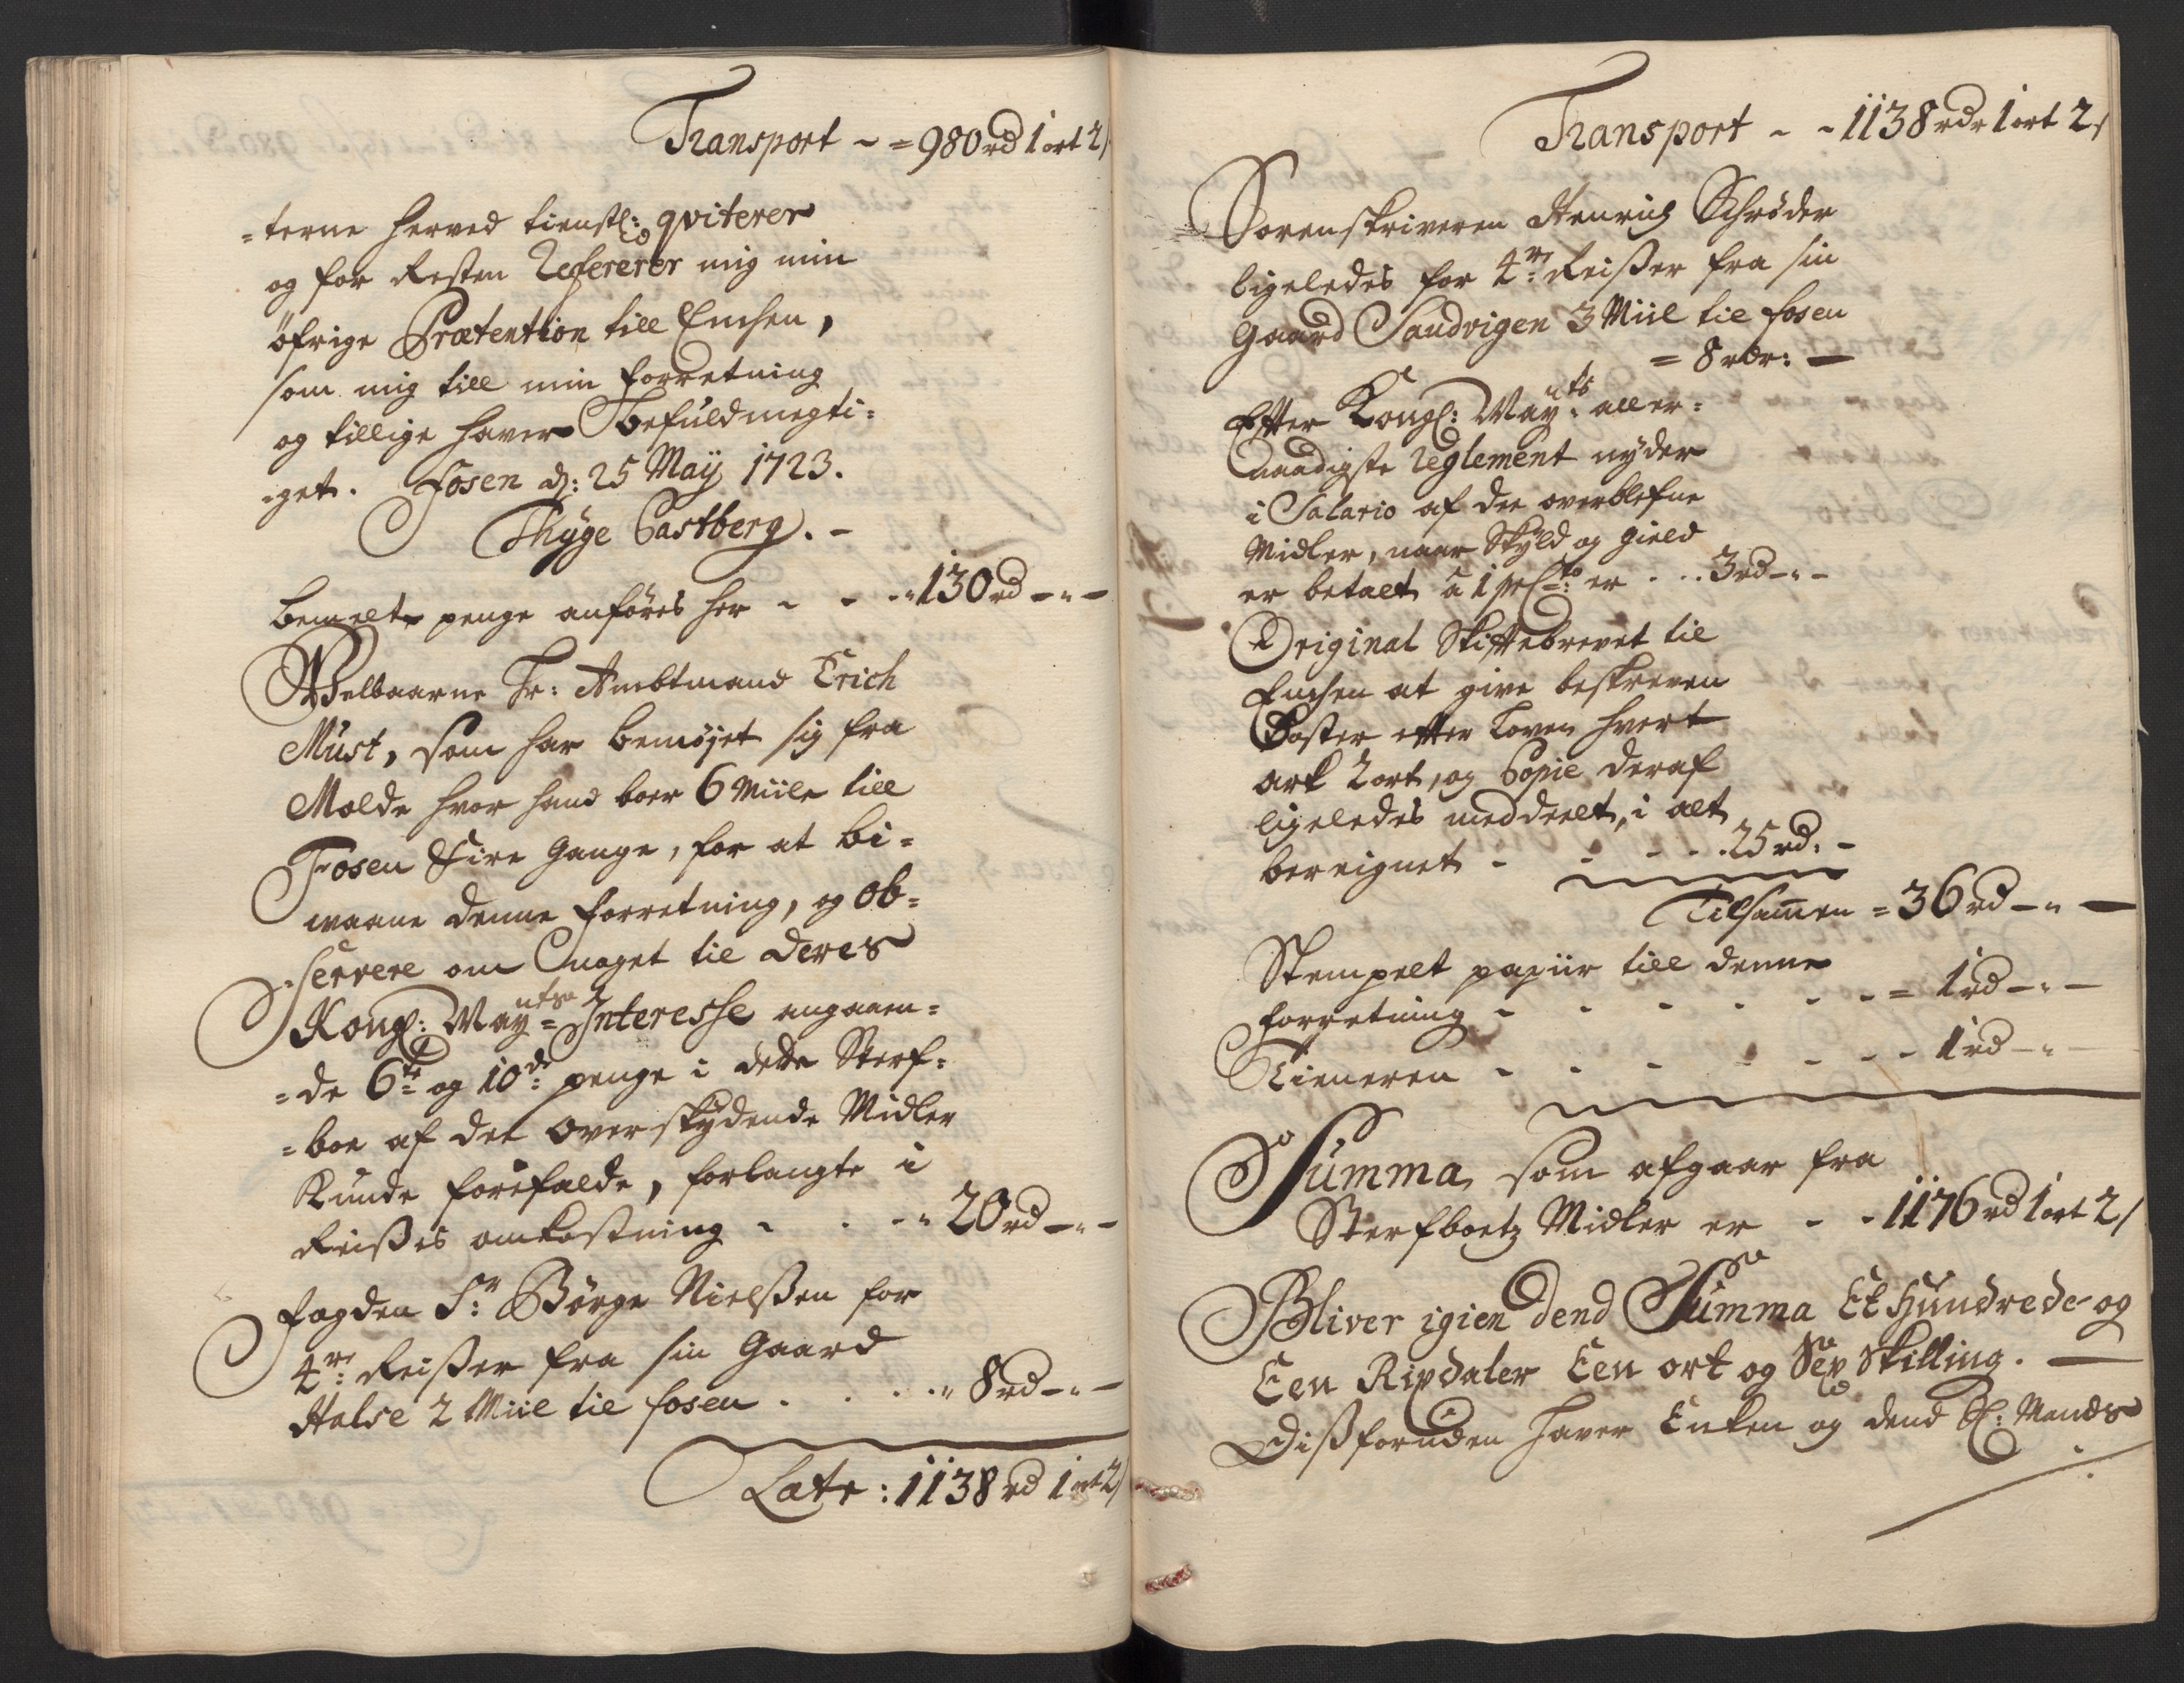 Transport - = 980 rd 1 ort 2/
=terne herved tienstl: qviterer
og for Resten Refererer mig min
öfrige Prætention till Enchen,
som mig till min forretning
og tillige haver befuldmegti=
get. Fosen d: 25 Maÿ 1723.
Thÿge Castberg. -
bemelte penge anföres her - - - 130 rd - " -
Welbaarne Hr: Ambtmand Erich
Must, som har bemøjet sig fra
Molde hvor hand boer 6 Miile till
Fosen Fire gange, for at bi=
waane denne forretning, og ob=
=servere om noget til deres
Kongl: May=tts Interesse angaaen=
=de 6te og 10de penge i dette Sterf=
=boe af det overskydende Midler
Kunde forefalde, forlangte i
Reisses omkostning - - - " 20 rd - " -
fogden Sr: Börge Nielssen for
4re Reisser fra sin Gaard
Halse 2 Miil til fosen . . . " 8 rd - " -
Late : 1138 rd 1 ort 2/
Transport - - 1138 rdr 1 ort 2/
Sorenskriveren Henrich Schrøder
ligeledes for 4re Reisser fra sin
Gaard Sandvigen 3 Miil til fosen
= 8 rdr: -
Efter Kongl: May:tts aller=
naadigste Reglement nÿder
i Salario af de overblefne
Midler, naar Skyld og gield
er betalt â 1 prCto: er . . . 3 rd - " -
Original Skiftebrevet til
Enchen at give beskreven
Koster efter Loven hvert
ark 2 ort, og Copie deraf
ligeledes meddeelt, i alt
bereignet - - - - . 25 rd. -
Tilsam̅en = 36 rd - " -
Stempelt papiir till denne
forretning - - - - - = 1 rd - " -
Tieneren - - - - - - 1 rd - " -
Summa, som afgaar fra
Sterfboetz Midler er - - 1176 rd 1 ort 2/
Bliver igien dend Summa Et Hundrede og
Een Rixdaler Een ort og Sex Skilling. -
Dissforuden haver Enken og dend Sl: Mands